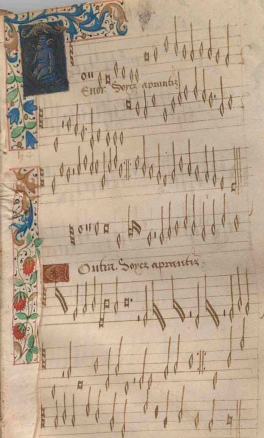 Enor Soyez aprantiz
Ontra. Soyez aprantiz